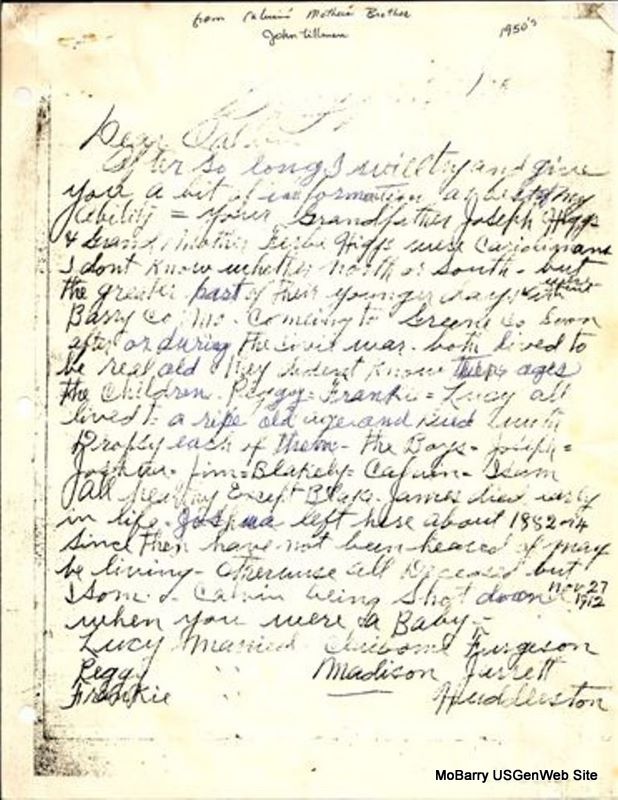 from Calvins' Mothers' Brother
John Tillman
1950's
Dear Calvin
After so long, I will try and give
you a bit of information as best of my
ability = your Grandfather Joseph Higgs
& Grand Mother Higgs were Carolinians
I dont know whether North or South - but
the greater part of their younger days were spent in
Barry Co, Mo. Comeing to Greene Co, Soon
after or during the Civil war - both lived to
be real old They diden't Know their ages
the Children. Peggy = Frankie = Lucy all
lived to a ripe old age and died with
Dropsy each of them - the Boys - Joseph =
Joshua - Jim = Blakely = Calvin - Isom
all healthy Except Blake - James died early
in life - Joshua left here about 1882 or 4
since then have not been heared of may
be living - otherwise all Deceased but
Isom - & Calvin being shot down Nov 27 1912
when you were a Baby -
Lucy Married Claiborne Furgison
Peggy " Madison Jarrett
Frankie Huddleston
MoBarry USGenWeb Site